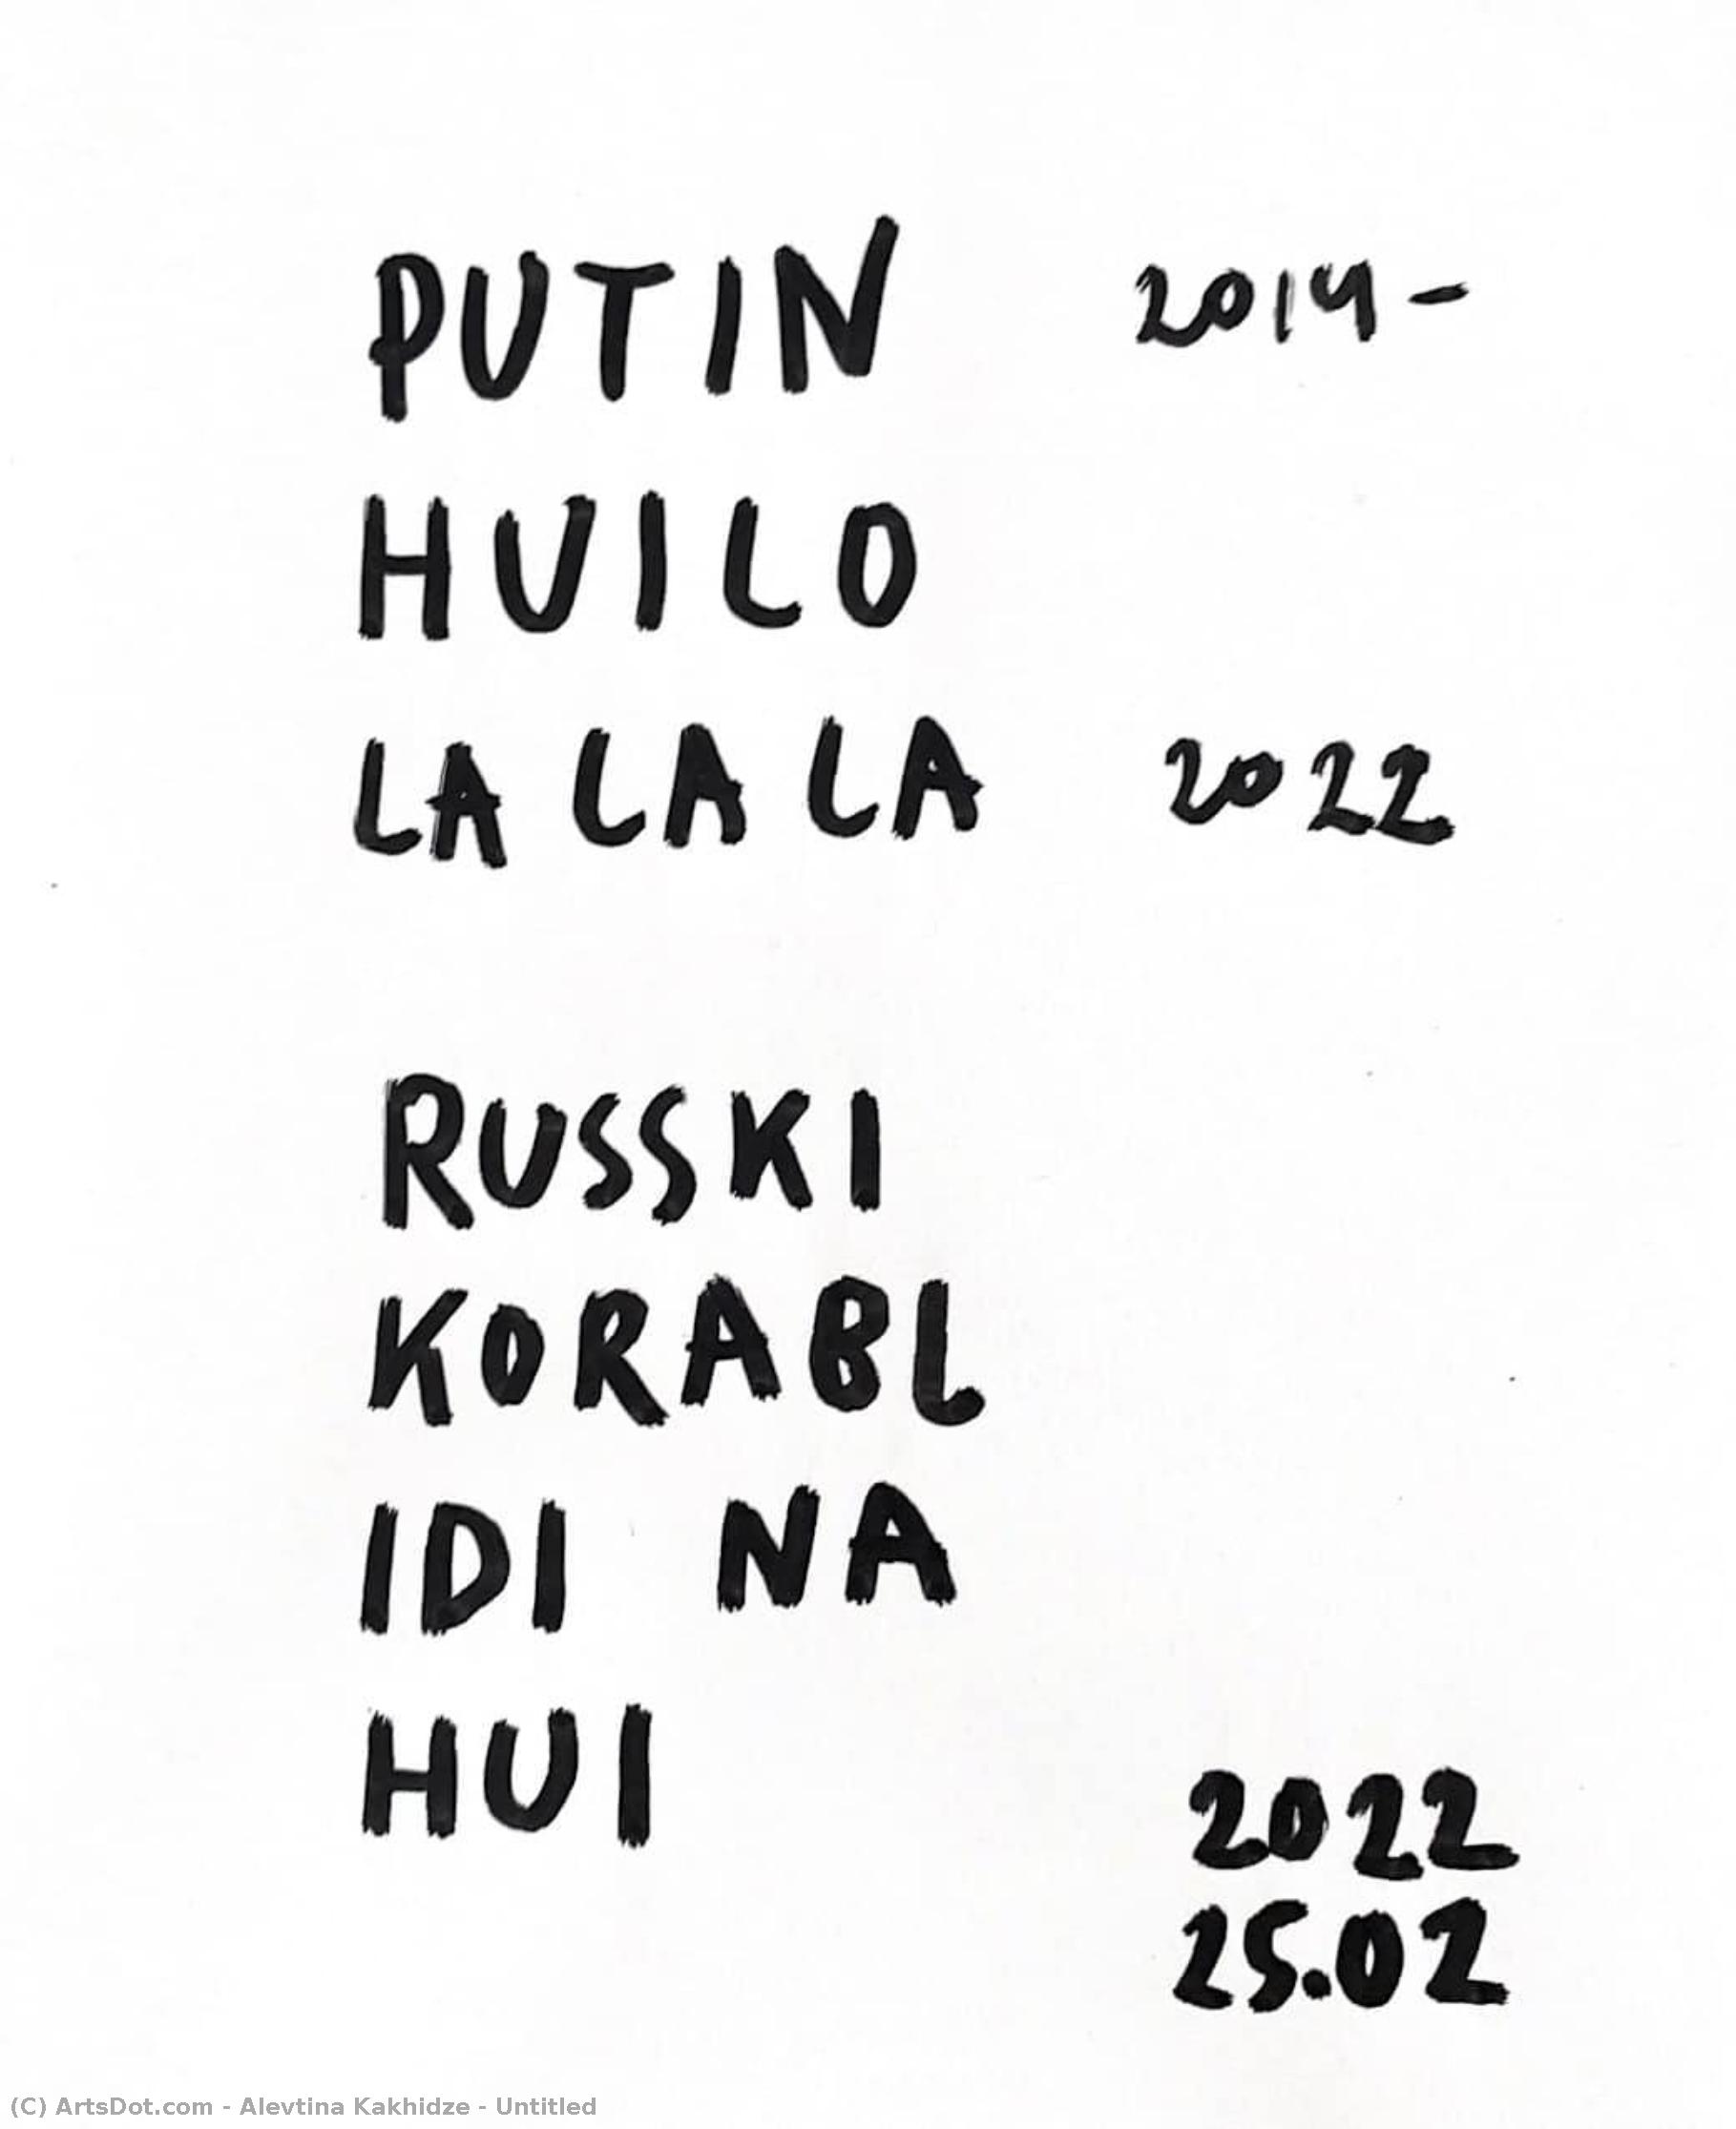 PUTIN 2014-
HUILO
LA LA LA 2022
RUSSKI
KORABL
IDI NA
HUI
2022
25.02
(C) ArtsDot.com - Alevtina Kakhidze - Untitled